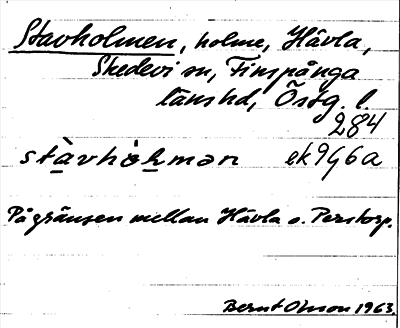 Stavholmen, holme, Hävla,
Skedevi sn, Finspånga
länshd, Östg. l.
284
stàvhòlmən ek 9g6a
På gränsen mellan Hävla o. Perstorp.
Bernt Olsson 1963.